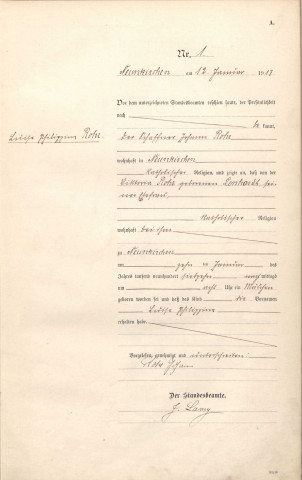 A.
Nr. 1
Neunkirchen am 12. Januar 1917
Vor dem unterzeichneten Standesbeamten erschien heute, der Persönlichkeit
nach be kannt,
Luise Philippina Rohe.
der Schaffner Johann Rohe
wohnhaft in Neunkirchen
katholischer Religion, und zeigte an, daß von der
Viktoria Rohe geborenen Leonhardt, sei-
ner Ehefrau
katholischer Religion
wohnhaft bei ihm
zu Neunkirchen
am zehn ten Januar des
Jahres tausend neunhundert siebzehn mittags
um acht Uhr ein Mädchen
geboren worden sei und daß das Kind die Vornamen
Luise Philippina
erhalten habe
Vorgelesen, genehmigt und unterschrieben
Rohe Johann
Der Standesbeamte.
J. Lang